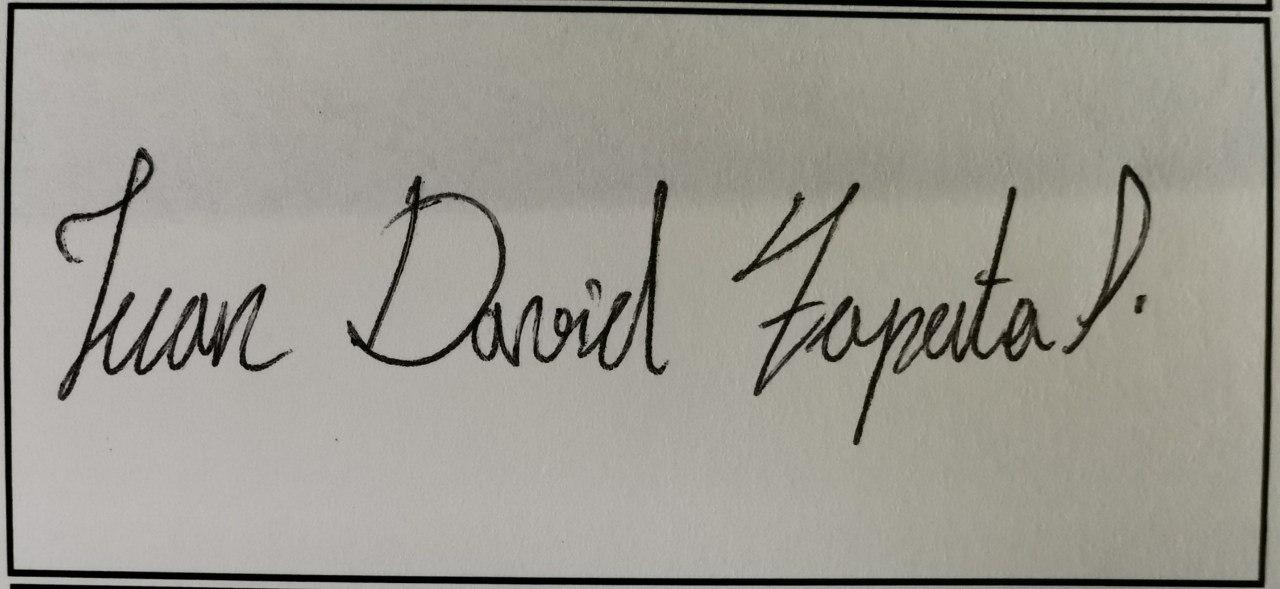 Juan David Zapata P.